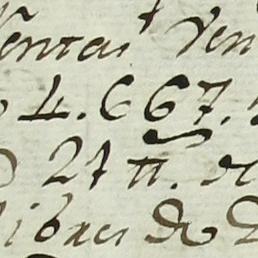 Ventas Ven
4.667.
27 tt. de
libras de D